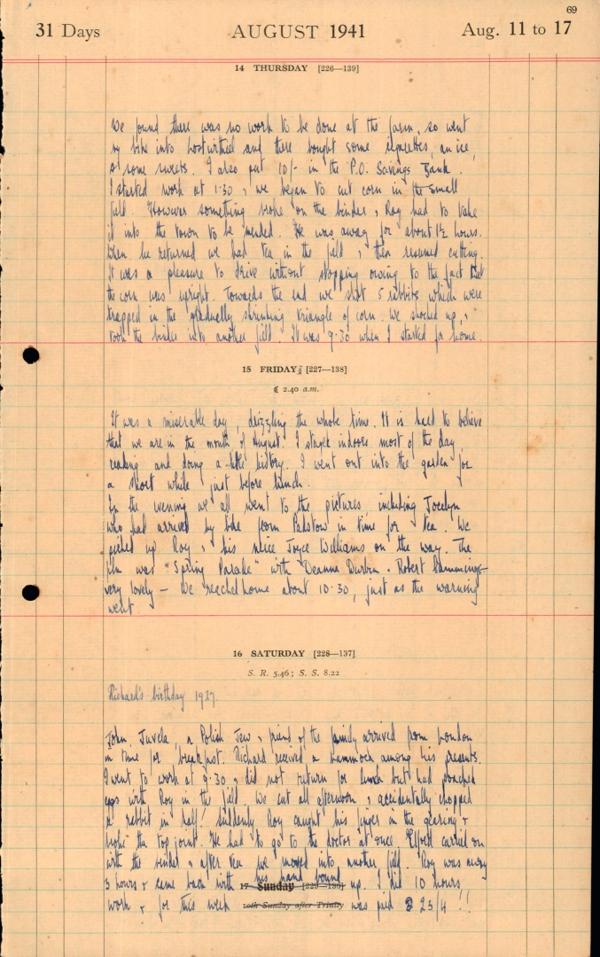 69
31 Days AUGUST 1941 Aug. 11 to 17
14 THURSDAY [226—139]
We found there was no work to be done at the farm, so went
by bike into and there bought some cigarettes, an ice,
& some sweets. I also put 10/- in the P.O. Savings Bank.
I started work at 1.30 & we began to cut corn in the small
field. However something broke on the binder & Roy had to take
it into the town to be mended. He was away for about 1½ hours.
When he returned we had tea in the field & then resumed cutting.
It was a pleasure to drive without stopping owing to the fact that
the corn was upright. Towards the end we shot 5 rabbits which were
trapped in the gradually shrinking triangle of corn. We shocked up, &
took the binder into another field. It was 9.30 when I started for home.
15 FRIDAY [227—138]
☾ 2.40 a.m.
It was a miserable day, drizzling the whole time. It is hard to believe
that we are in the month of August. I stayed indoors most of the day
reading and doing a little history. I went out into the garden for
a short while just before lunch.
In the evening we all went to the pictures, including Jocelyn
who had arrived by bike from Padstow in time for tea. We
picked up Roy & his niece Joyce Williams on the way. The
film was "Spring Parade" with Deanna Durbin & Robert Cummings—
very lovely — We reached home about 10.30, just as the warning
went.
16 SATURDAY [228—137]
S. R. 5.46; S. S. 8.22
Richard's birthday 1927
John Juvela, a Polish Jew & friend of the family arrived from London
in time for breakfast. Richard received a hammock among his presents.
I went to work at 9.30 & did not return for lunch but had poached
eggs with Roy in the field. We cut all afternoon & accidentally chopped
a rabbit in half! Suddenly Roy caught his finger in the gearing &
broke the top joint. We had to go to the doctor at once. carried on
with the binder & after tea we moved into another field. Roy was away
3 hours & came back with his hand bound up. I did 10 hours'
17 Sunday [229—136]
work & for this week was paid £ 25/4 !!
10th Sunday after Trinity